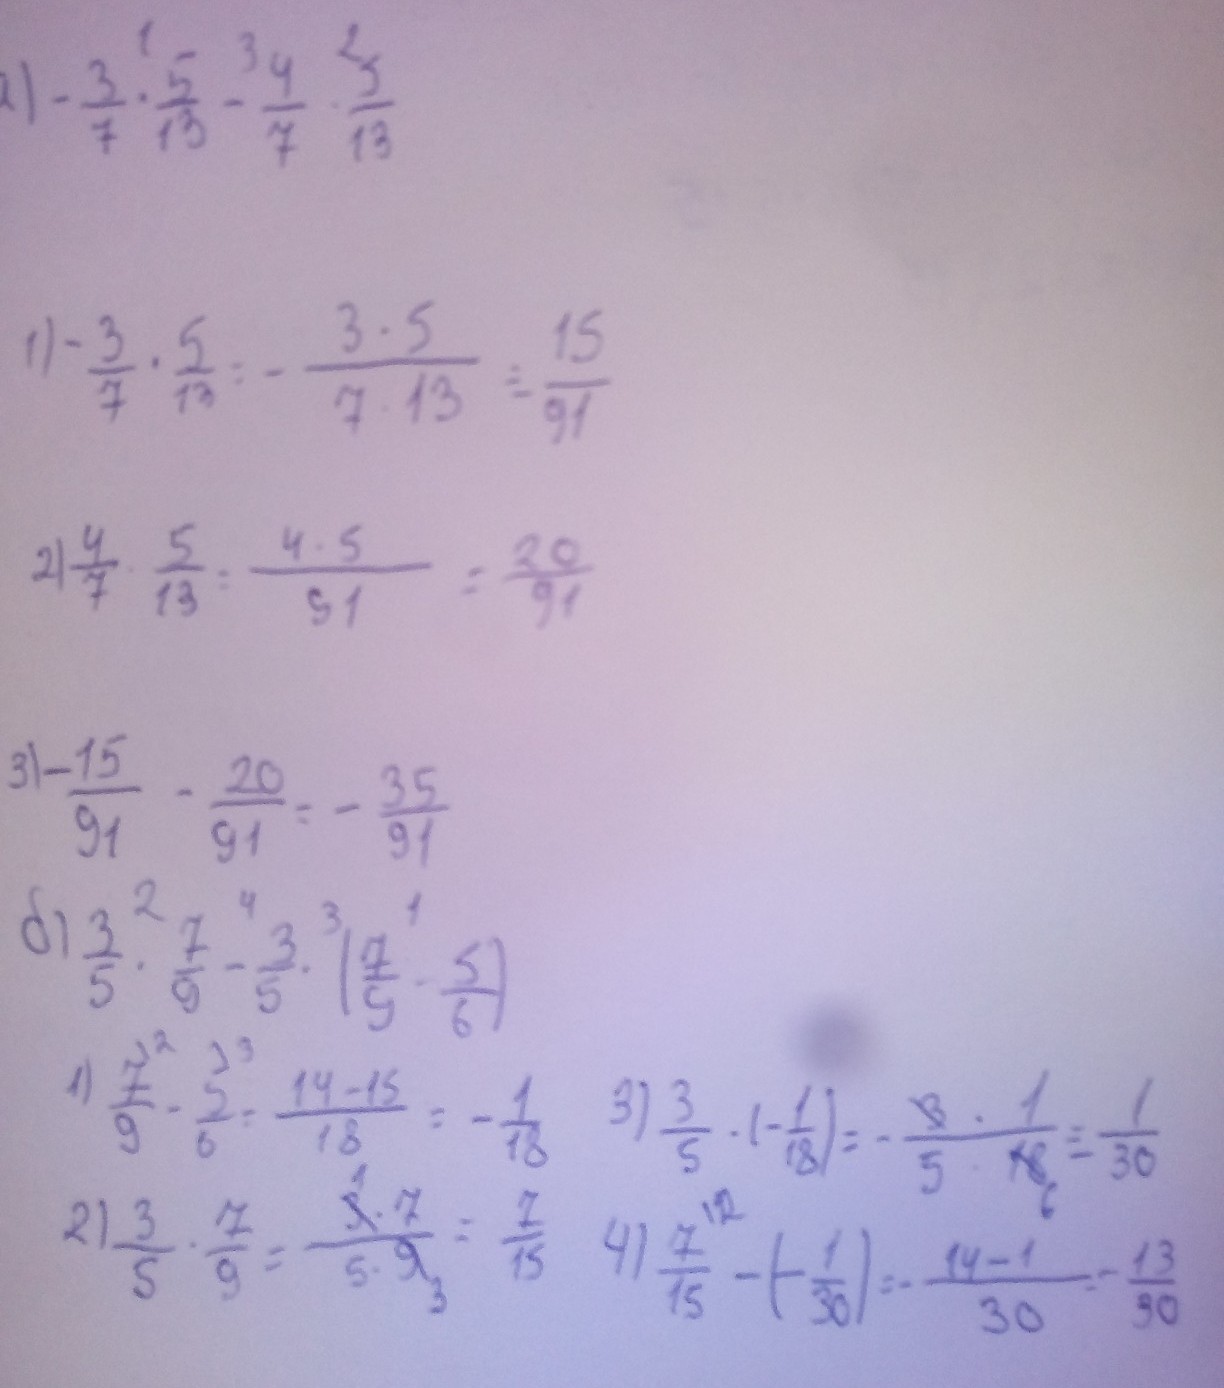 а) - 3/7 · 5/13 - 4/7 · 5/13
1) - 3/7 · 5/13 = - 3 · 5 / 7 · 13 = - 15/91
2) 4/7 · 5/13 = 4 · 5 / 91 = 20/91
3) - 15/91 - 20/91 = - 35/91
б) 3/5 · 7/9 - 3/5 · (7/9 - 5/6)
1) 7/9 - 5/6 = 14 - 15 / 18 = - 1/18
2) 3/5 · 7/9 = 3 · 7 / 5 · 9 = 7/15
3) 3/5 · (- 1/18) = - 3 · 1 / 5 · 18 = - 1/30
4) 7/15 - (- 1/30) = - 14 - 1 / 30 = - 13/30